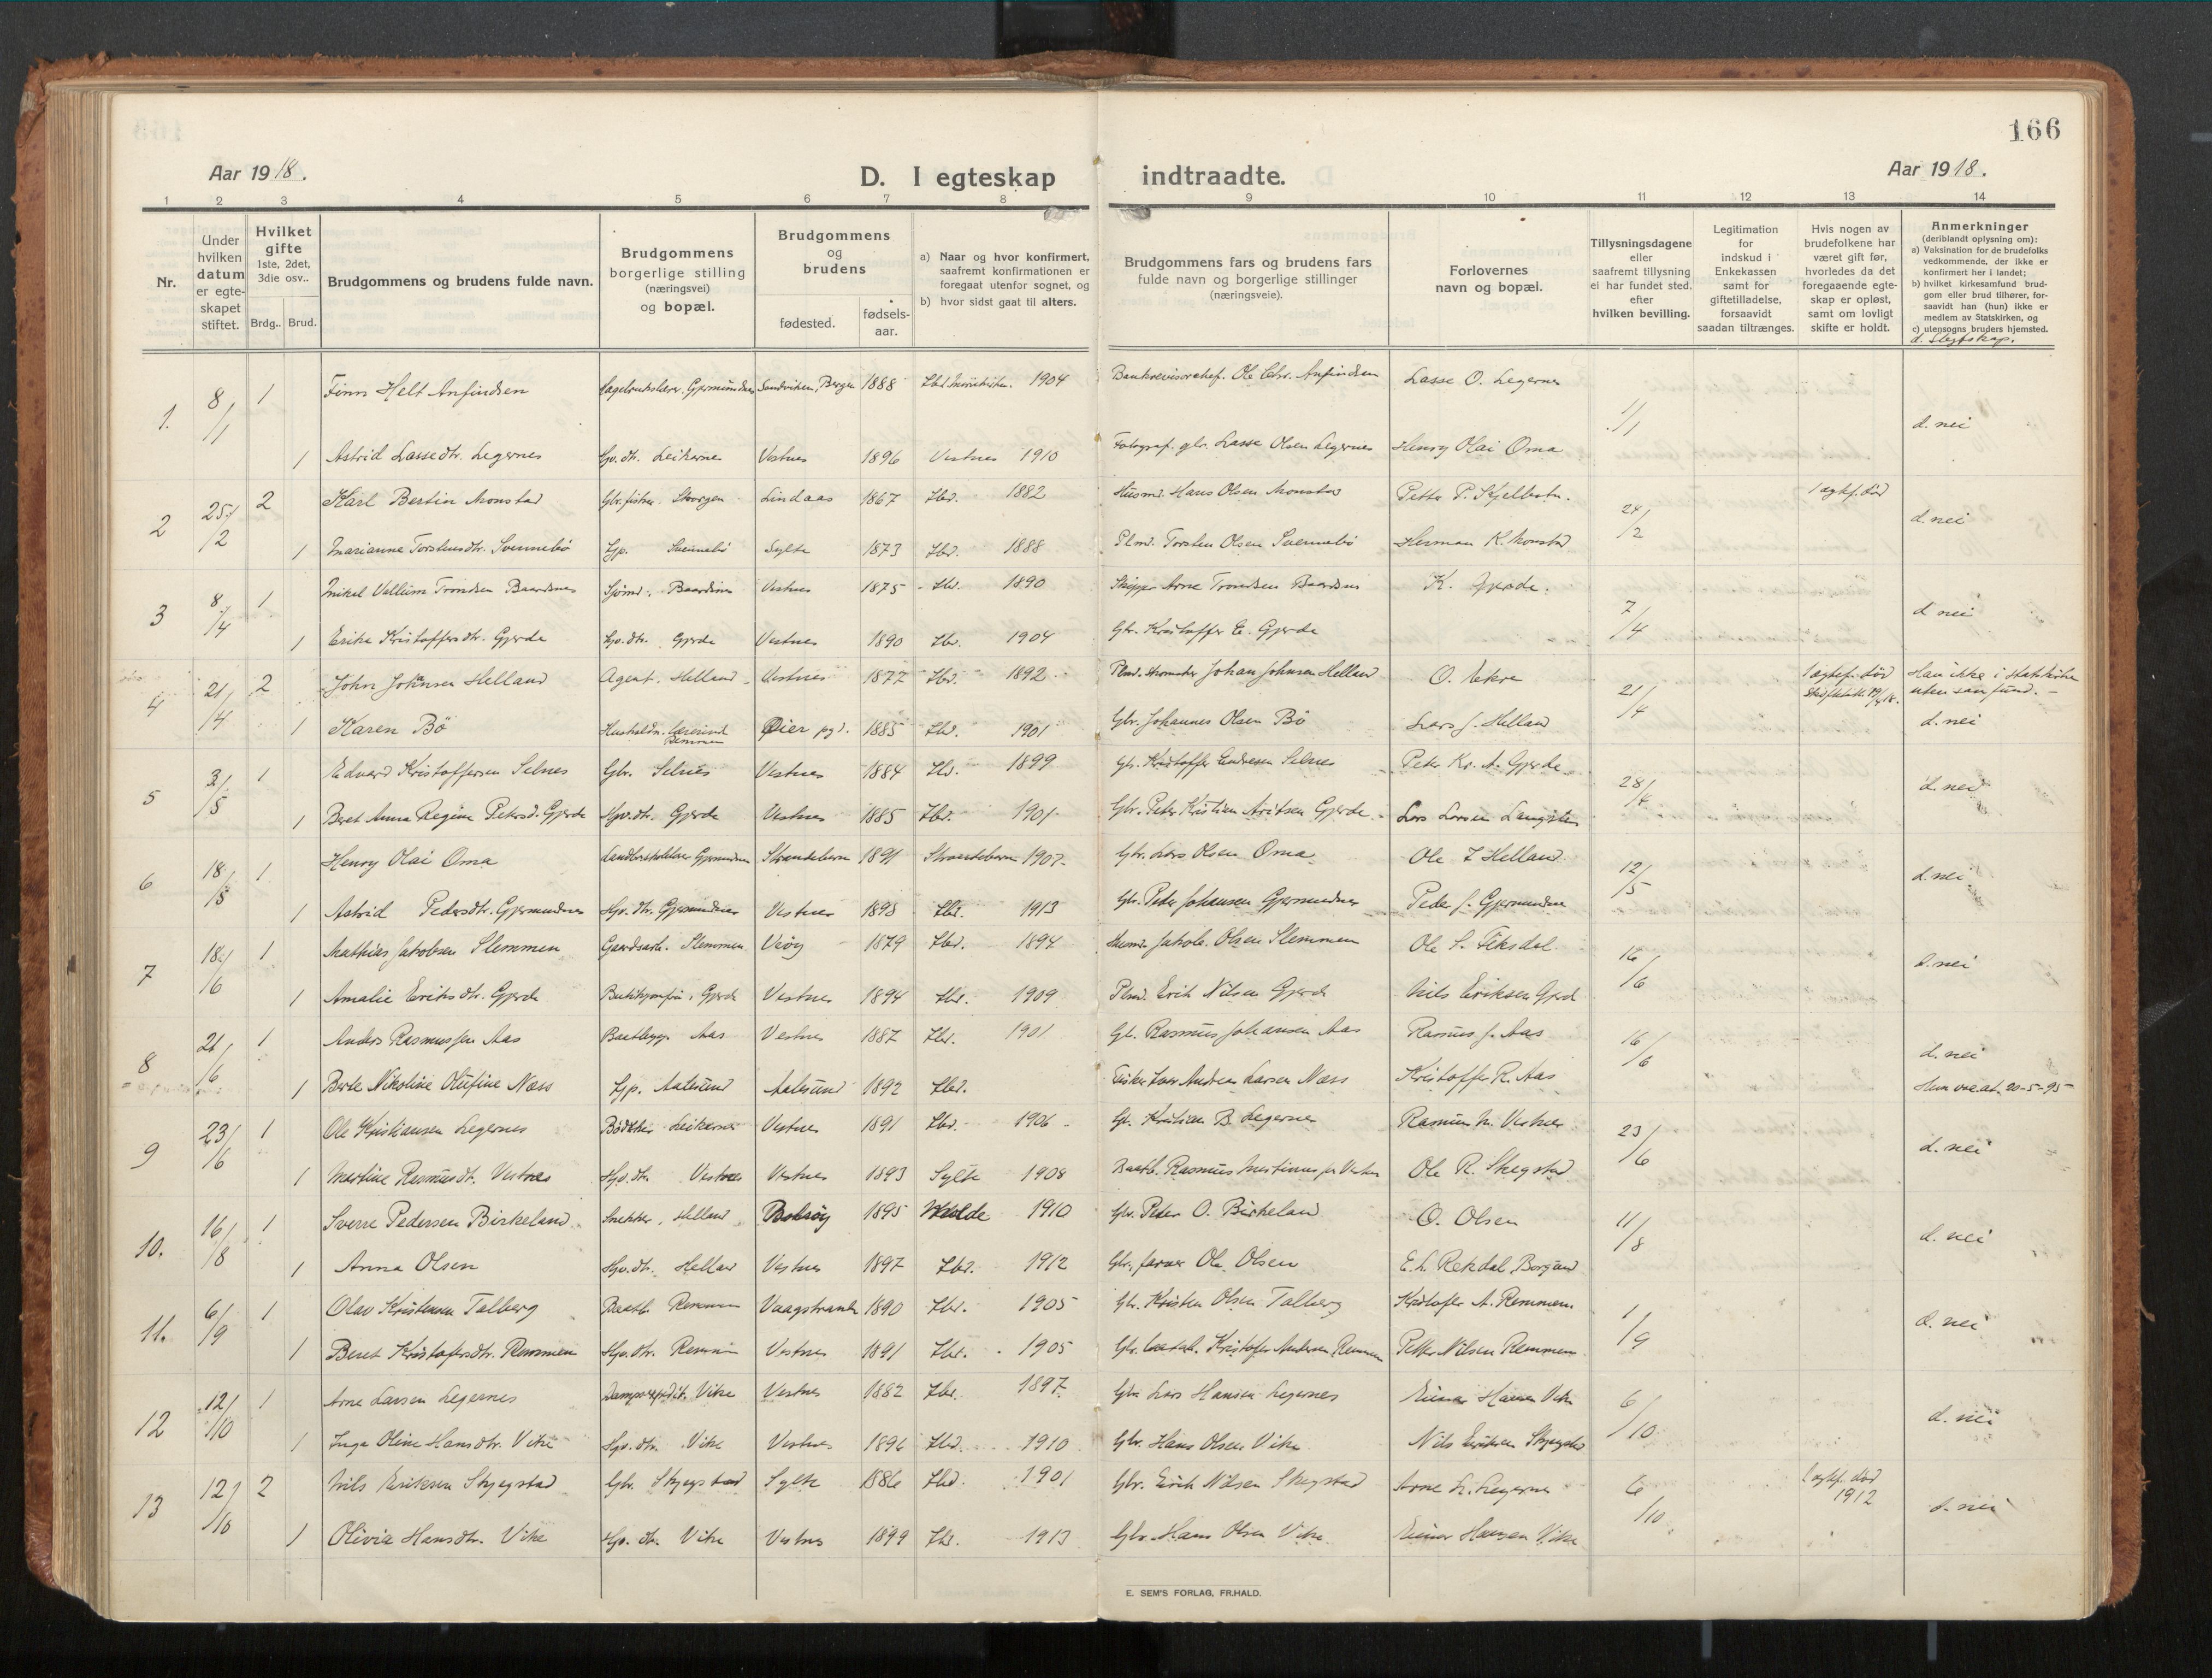 166
Aar 1918.
D. I egteskap indtraadte.
Aar 1918.
1 2 3 4 5 6 7 8 9 10 11 12 13 14
Nr.
Under hvilken datum er egteskapet stiftet.
Hvilket gifte 1ste, 2det, 3die osv..
Brdg.. Brud.
Brudgommens og brudens fulde navn.
Brudgommens borgerlige stilling (næringsvei) og bopæl.
Brudgommens og brudens
fødested.
fødsels-aar.
a) Naar og hvor konfirmert, saafremt konfirmationen er foregaat utenfor sognet, og
b) hvor sidst gaat til alters.
Brudgommens fars og brudens fars fulde navn og borgerlige stillinger (næringsveie).
Forlovernes navn og bopæl.
Tillysningsdagene eller saafremt tillysning ei har fundet sted, efter hvilken bevilling.
Legitimation for indskud i Enkekassen samt for giftetilladelse, forsaavidt saadan tiltrænges.
Hvis nogen av brudefolkene har været gift før, hvorledes da det foregaaende egteskap er opløst, samt om lovligt skifte er holdt.
Anmerkninger
(deriblandt oplysning om):
a) Vaksination for de brudefolks vedkommende, der ikke er konfirmert her i landet;
b) hvilket kirkesamfund brudgom eller brud tilhører, forsaavidt han (hun) ikke er medlem av Statskirken, og
c) utensogns bruders hjemsted.
d. Slegtskap.
1. 8/1 1 Finn Helt Anfindsen Sandviken, Bergen 1888 1904 Ole Chr. Anfindsen Lasse O. Legernes 1/1 d. nei
1 Astrid Lassedtr. Legernes Gp. dtr. Leikernes Vestnes 1896 Vestnes 1910 Fotograf. gbr. Lasse Olsen Legernes Henry Olai Oma
2 25/2 2 Karl Bertin Monstad Gbr. fisker Skorgen Lindaas 1867 Ibid. 1882 Husmd. Hans Olsen Monstad Petter P. Skjelbotn. 24/2 1 egtef. død d. nei
1 Marianne Torstensdtr. Svennebø Tjp. Svennebø Sylte 1873 Ibid. 1888 Plmd. Torsten Olsen Svennebø Herman K. Monstad
3 8/4 1 Mikal Vellum Trondsen Baardsnes Sjømd. Baardsnes Vestnes 1875 Ibid. 1890 Skipper Arne Trondsen Baardsnes K. Gjerde. 7/4 d. nei
1 Erika Kristoffersdtr. Gjerde Gp. dtr. Gjerde Vestnes 1890 Ibid. 1904 Gbr. Kristoffer E. Gjerde
4 21/4 2 John Johnsen Helland Agent. Helland Vestnes 1877 Ibid. 1892 Johan Johnsen Helland O. Ekre 21/4 1 egtef. død Han ikke i statskirken
uten samfund.
1 Karen Bø Øier pgd. 1885 Ibid. 1901 Gbr. Johannes Olsen Bø Lars J. Helland d. nei
5 3/5 1 Edvard Kristoffersen Selnes Gbr. Selnes Vestnes 1884 Ibid. 1899 Gbr. Kristoffer Endresen Selnes Peter Kr. A. Gjerde 28/4 d. nei
1 Beret Anna Regine Petersd. Gjerde Gp. dtr. Gjerde Vestnes 1885 Ibid. 1901 Gbr. Peter Kristian Aritsen Gjerde Lars Larsen
6 18/5 1 Henry Olai Oma Strandebarm 1891 Strandebarm 1907 Gbr. Lars Olsen Oma Ole Helland 12/5 d. nei
1 Astrid Pedersdtr. Gjermundnes Gp. dtr. Gjermundnes Vestnes 1898 Ibid. 1913 Gbr. Peder Johansen Gjermundnes Peder J. Gjermundnes
7 18/6 1 Mathias Jakobsen Slemmen Gaardsarb. Slemmen Veøy 1879 Ibid. 1894 Husmd. Jakob Olsen Slemmen Ole S. Fiksdal 16/6 d. nei
1 Amalie Eriksdtr. Gjerde Gjerde Vestnes 1894 Ibid. 1909 Plmd. Erik Nilsen Gjerde Nils Eriksen Gjerde
8 21/6 1 Anders Rasmussen Aas Baatbygg. Aas Vestnes 1887 Ibid. 1901 Gb. Rasmus Johansen Aas Rasmus J. Aas 16/6 d. nei
1 Berte Nikoline Olufine Næss Tjp. Aalesund Aalesund 1892 Ibid. Fisker Iver Andreas Larsen Næss Kristoffer R. Aas Hun vac. at. 20-5-95
9 23/6 1 Ole Kristiansen Legernes Bødker Leikernes Vestnes 1891 Ibid. 1906 Gb. Kristian B. Legernes Rasmus M. Vestnes 23/6 d. nei
1 Martine Rasmusdt. Vestnes Gp. dtr. Vestnes Vestnes 1893 Sylte 1908 Baatb. Rasmus Martinussen Vestnes Ole R. Skegstad
10. 16/8 1 Sverre Pedersen Birkeland Snekker, Helland Bolsøy 1895 Molde 1910 Gbr. Peder O. Birkeland O. Olsen 11/8 d. nei
1 Anna Olsen Gp. dtr. Helland Vestnes 1897 Ibid. 1912 Gbr. farver Ole Olsen E. L. Rekdal, Borgund
11. 6/9 1 Olav Kristensen Talberg Baatb. Remmen Vaagstranda 1890 Ibid. 1905 Gbr. Kristen Olsen Talberg Kristofer A. Remmem. 1/9 d. nei
1 Beret Kristofersdtr. Remmen Gp. dtr. Remmen Vestnes 1891 Ibid. 1905 Gbr. baatb. Kristofer Andersen Remmen Petter Nilsen Remmem
12 12/10 1 Arne Larsen Legernes Dampexpeditør Vike Vestnes 1882 Ibid. 1897 Gbr. Lars Hansen Legernes Einar Hansen Vike 6/10 d. nei
1 Inga Oline Hansdtr. Vike Gp. dtr. Vike Vestnes 1896 Ibid. 1910 Gbr. Hans Olsen Vike Nils Eriksen Skjegstad
13 12/10 2 Nils Eriksen Skjegstad Gbr. Skjegstad Sylte 1886 Ibid. 1901 Gbr. Erik Nilsen Skegstad Arne L. Legernes 6/10 1 egtef. død 1912 d. nei
1 Olivia Hansdtr. Vike Gp. dtr. Vike Vestnes 1899 Ibid. 1913 Gbr. Hans Olsen Vike Einar Hansen Vike
E. SEM'S FORLAG, FR.HALD.